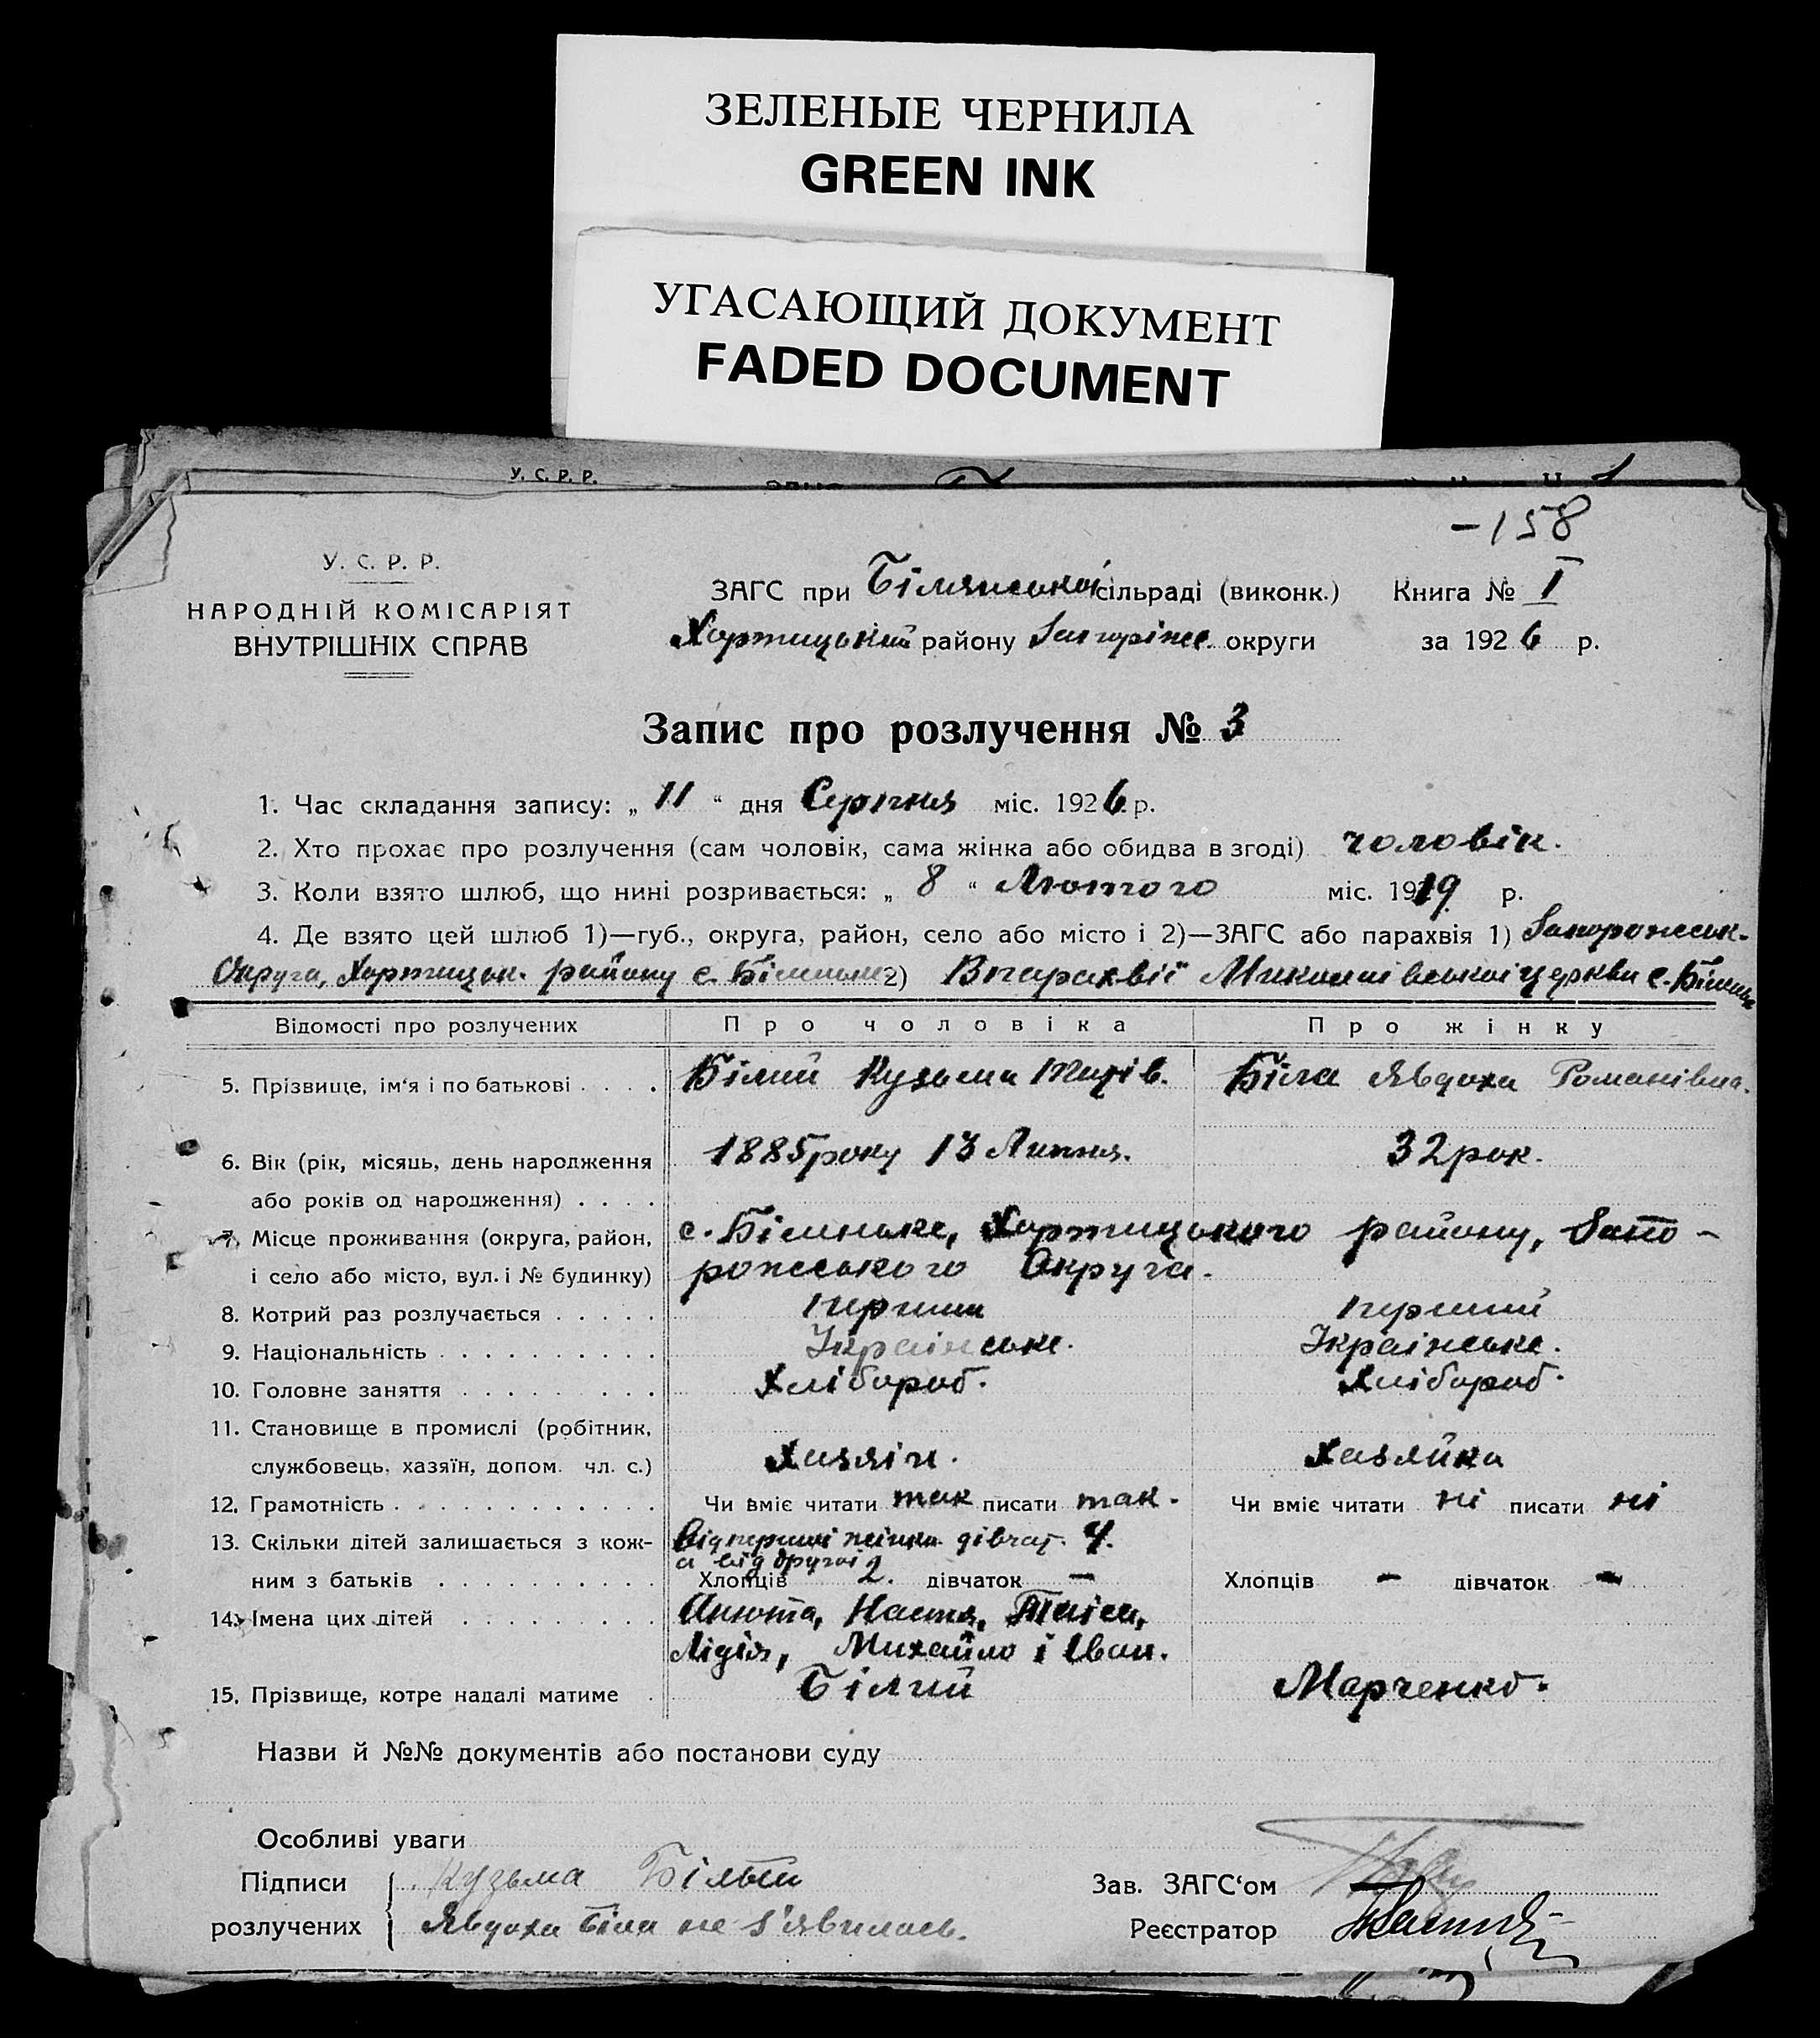 ЗЕЛЕНЫЕ ЧЕРНИЛА
GREEN INK
УГАСАЮЩИЙ ДОКУМЕНТ
FADED DOCUMENT
У. С. Р. Р.
-158
У. С. Р. Р.
НАРОДНІЙ КОМІСАРІЯТ
ВНУТРІШНІХ СПРАВ
ЗАГС при сільраді (виконк.) Книга № I
Хортицький району Запоріже. округи за 1926 р.
Запис про розлучення № 3
1. Час складання запису: „ 11 “ дня Серпня міс. 1926 р.
2. Хто прохає про розлучення (сам чоловік, сама жінка або обидва в згоді) чоловік.
3. Коли взято шлюб, що нині розривається: „ 8 “ Лютого міс. 1919 р.
4. Де взято цей шлюб 1)—губ., округа, район, село або місто і 2)—ЗАГС або парахвія 1) Запорожськ.
Округа, Хортицьк. району с. Біленьке 2) В парахвії Миколаівськоі церкви с. Біленьке
Відомості про розлучених Про чоловіка Про жінку
5. Прізвище, ім‘я і по батькові . . . . Білий Кузьма Тит̄ів. Біла Явдоха Романівна.
6. Вік (рік, місяць, день народження 1885 року 13 Липня. 32 рок.
або років од народження) . . . .
7. Місце проживання (округа, район, с. Біленьке, Хортицького району, Запо-
і село або місто, вул. і № будинку) рожського Округа.
8. Котрий раз розлучається . . . . . перший перший
9. Національність . . . . . . . . . . Українське. Українське.
10. Головне заняття . . . . . . . . . Хлібороб. Хлібороб.
11. Становище в промислі (робітник,
службовець, хазяїн, допом. чл. с.) Хазяін. Хазяйка
12. Грамотність . . . . . . . . . . . . Чи вміє читати так писати так. Чи вміє читати ні писати ні
13. Скільки дітей залишається з кож- Від першоі жінки дівчат. 4.
а від другоі
ним з батьків . . . . . . . . . . Хлопців 2. дівчаток — Хлопців — дівчаток —
14. Імена цих дітей . . . . . . . . . Анюта, Настя, Таіса,
Лідія, Михайло і Іван.
15. Прізвище, котре надалі матиме . Білий Марченко.
Назви й №№ документів або постанови суду
Особливі уваги
Підписи Кузьма Білый Зав. ЗАГС‘ом
розлучених Явдоха Біла не з'явилась. Реєстратор